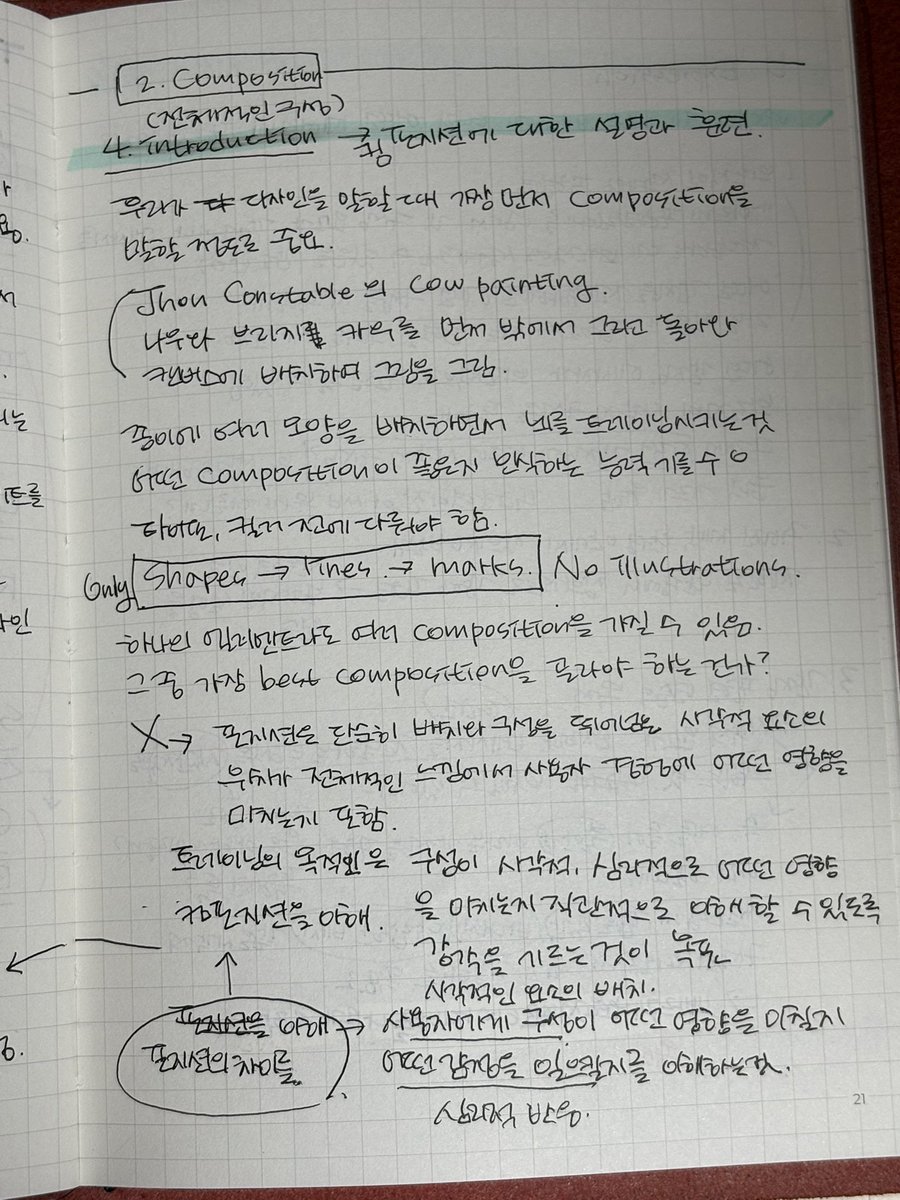 2. Composition
(전체적인 구성)
4. Introduction - 컴포지션에 대한 설명과 훈련.
우리가 다자인을 말할 때 가장 먼저 composition을
말할 정도로 중요.
Jhon Constable의 cow painting.
나무와 브리지 카우를 먼저 밖에서 그리고 돌아와
캔버스에 배치하여 그림을 그림.
종이에 여러 모양을 배치하면서 뇌를 트레이닝시키는 것
어떤 composition이 좋은지 인식하는 능력 기를 수 O
타이포, 컬러 전에 다뤄야 함.
Only Shapes → Lines → marks. No Illustrations.
하나의 엘리먼트라도 여러 composition을 가질 수 있음.
그 중 가장 best composition을 골라야 하는 건가?
X → 포지션은 단순히 배치와 구성을 뛰어넘은 시각적 요소의
위치가 전체적인 느낌에서 사용자 경험에 어떤 영향을
미치는지 포함.
트레이닝의 목적은 구성이 시각적, 심리적으로 어떤 영향
컴포지션을 이해. 을 미치는지 직관적으로 이해할 수 있도록
감각을 기르는 것이 목표
시각적인 요소의 배치.
포지션을 이해 → 사용자에게 구성이 어떤 영향을 미칠지
포지션의 차이를 어떤 감정을 일으킬지를 이해하는 것.
심리적 반응.
21